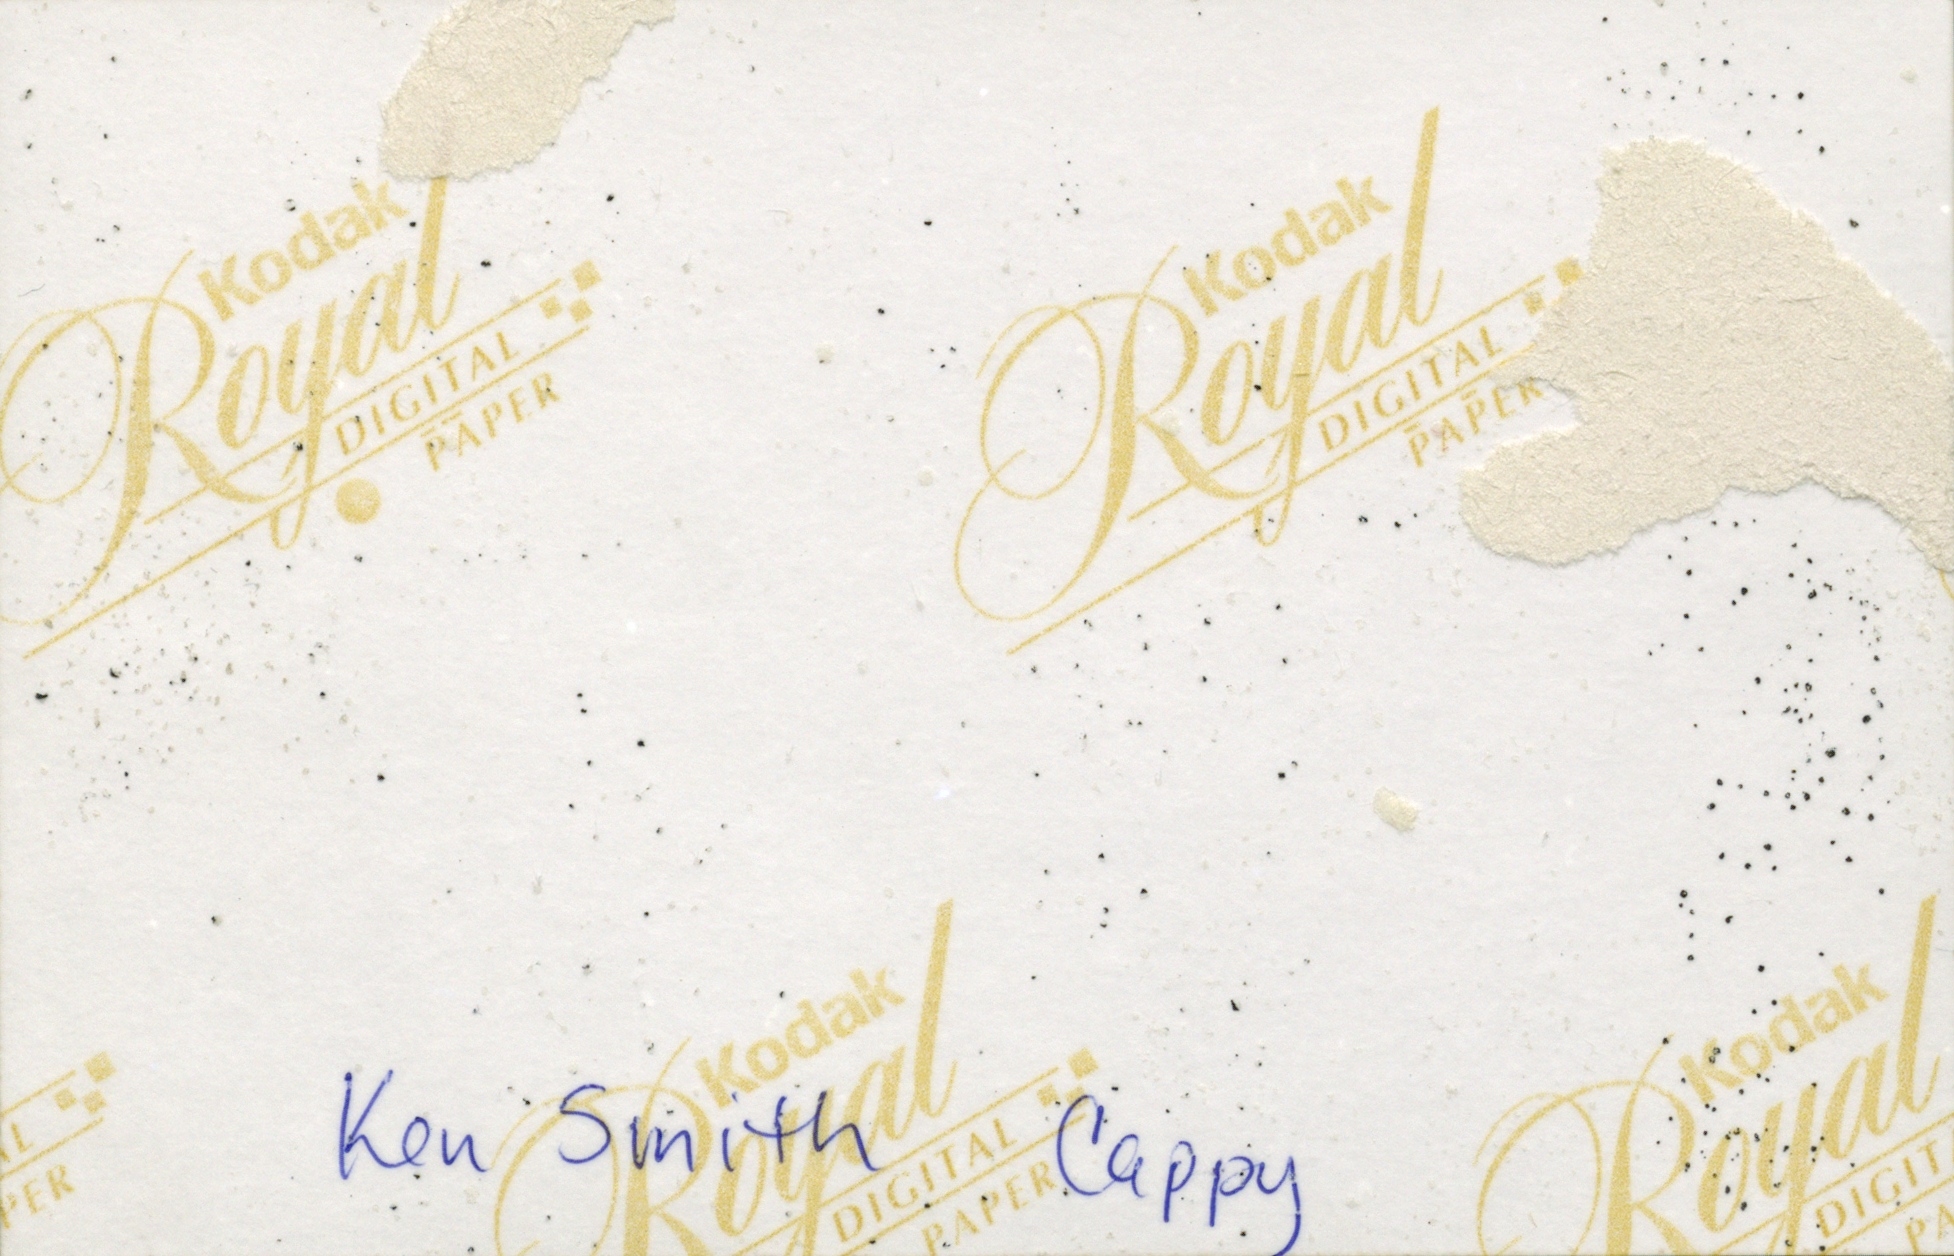 Kodak
Royal
DIGITAL
PAPER
Kodak
Royal
DIGITAL
PAPER
Kodak
Royal
DIGITAL
PAPER
Kodak
Royal
DIGIT
PA
AL
PER
Ken Smith Cappy